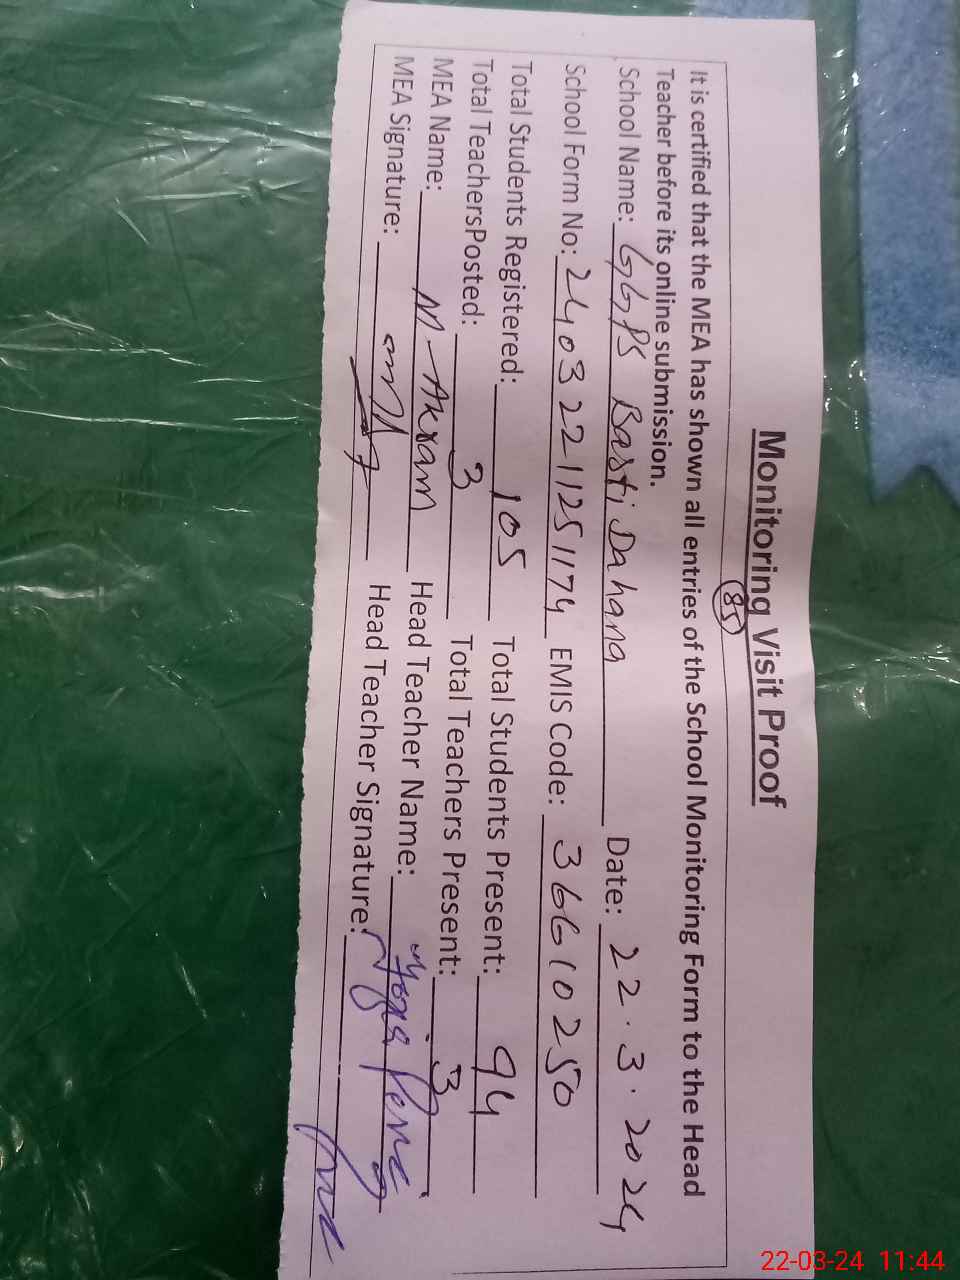 Monitoring Visit Proof
85
It is certified that the MEA has shown all entries of the School Monitoring Form to the Head
Teacher before its online submission.
School Name: GGPS Basti Dahana Date: 22.3.2024
School Form No: 24032211251174 EMIS Code: 36610250
Total Students Registered: 105 Total Students Present: 94
Total TeachersPosted: 3 Total Teachers Present: 3
MEA Name: M-Akram Head Teacher Name:
MEA Signature: Head Teacher Signature:
22-03-24 11:44